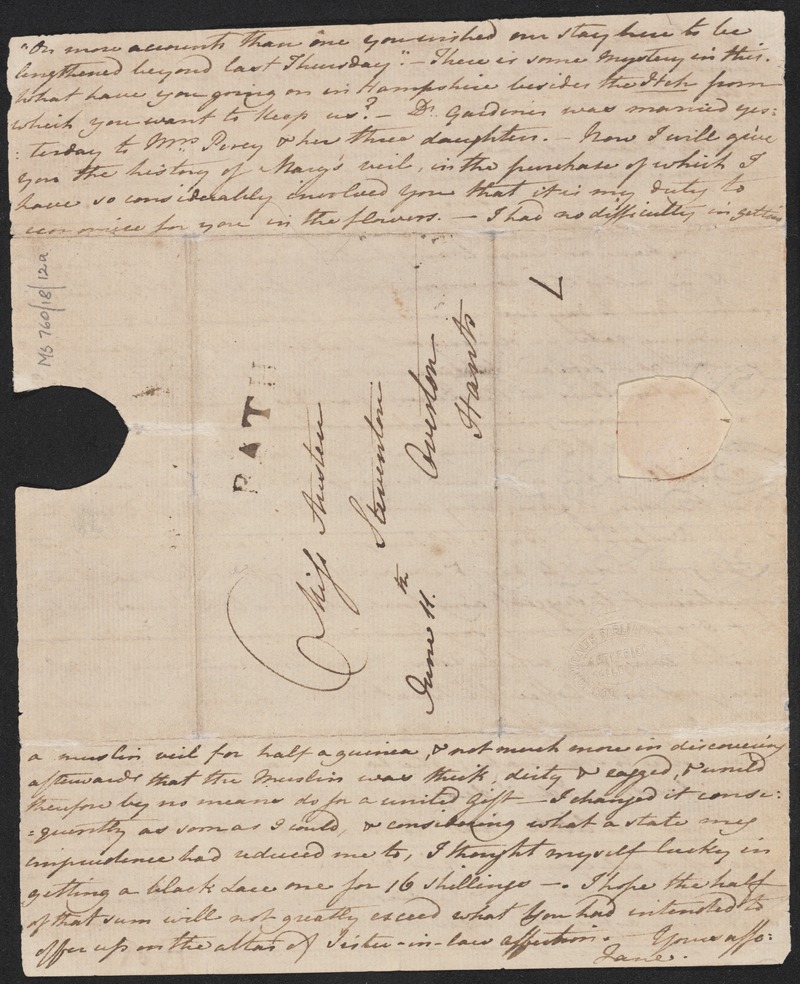 "On more accounts than one you wished our stay here to be
lengthened beyond last Thursday." — There is some Mystery in this.
What have you going on in Hampshire besides the Itch from
which you want to keep us? — Dr. Gardiner was married yes:
:terday to Mrs. Percy & her three daughters. — Now I will give
you the history of Mary's veil, in the purchase of which I
have so considerably involved you that it is my duty to
economise for you in the flowers. — I had no difficulty in getting
MS 760/18/12a
BATH
7
Miss Austen
Steventon
Overton
Hants
June 11.th
a muslin veil for half a guinea, & not much more in discovering
afterwards that the Muslin was thick, dirty & ragged, & would
therefore by no means do for a united Gift — I changed it conse:
:quently as soon as I could, & considering what a state my
impudence had reduced me to, I thought myself lucky in
getting a black Lace one for 16 shillings —. I hope the half
of that sum will not greatly exceed what You had intended to
offer up on the altar of Sister-in-law affection. — Yours affe:
Jane.